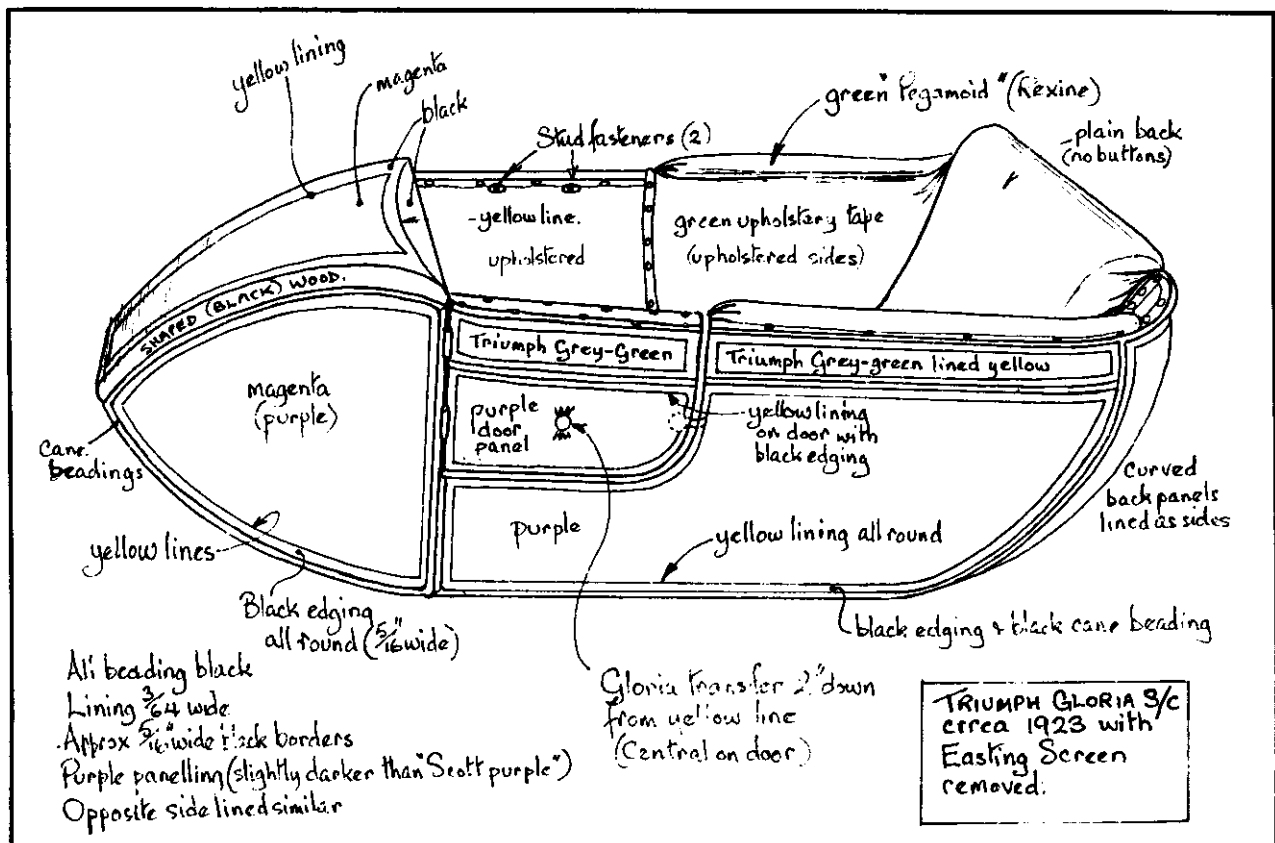 yellow lining
magenta
black
Stud fasteners (2)
green "Pegamoid" (Rexine)
- plain back
(no buttons)
- yellow line.
upholstered
green upholstary tape
(upholstered sides)
SHAPED (BLACK) WOOD.
Triumph Grey-Green
Triumph Grey-green lined yellow
magenta
(purple)
purple
door
panel
yellow lining
on door with
black edging
cane
beadings
curved
back panels
lined as sides
purple
yellow lines
yellow lining all round
Black edging
all round (5/16" wide)
black edging & black cane beading
All beading black
Lining 3/64 wide
Approx 5/16" wide black borders
Purple panelling (slightly darker than "Scott purple")
Opposite side lined similar
Gloria transfer 2" down
from yellow line
(Central on door)
TRIUMPH GLORIA S/C
circa 1923 with
Easting Screen
removed.